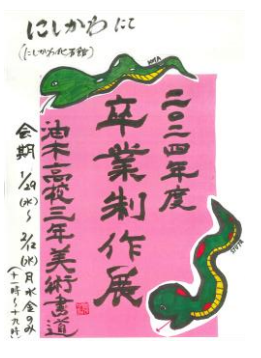 にしかわにて
二〇二四年度
卒業制作展
油木高校三年美術書道
会期 1/29(水)~2/12(水)月水金のみ
(十一時~十九時)